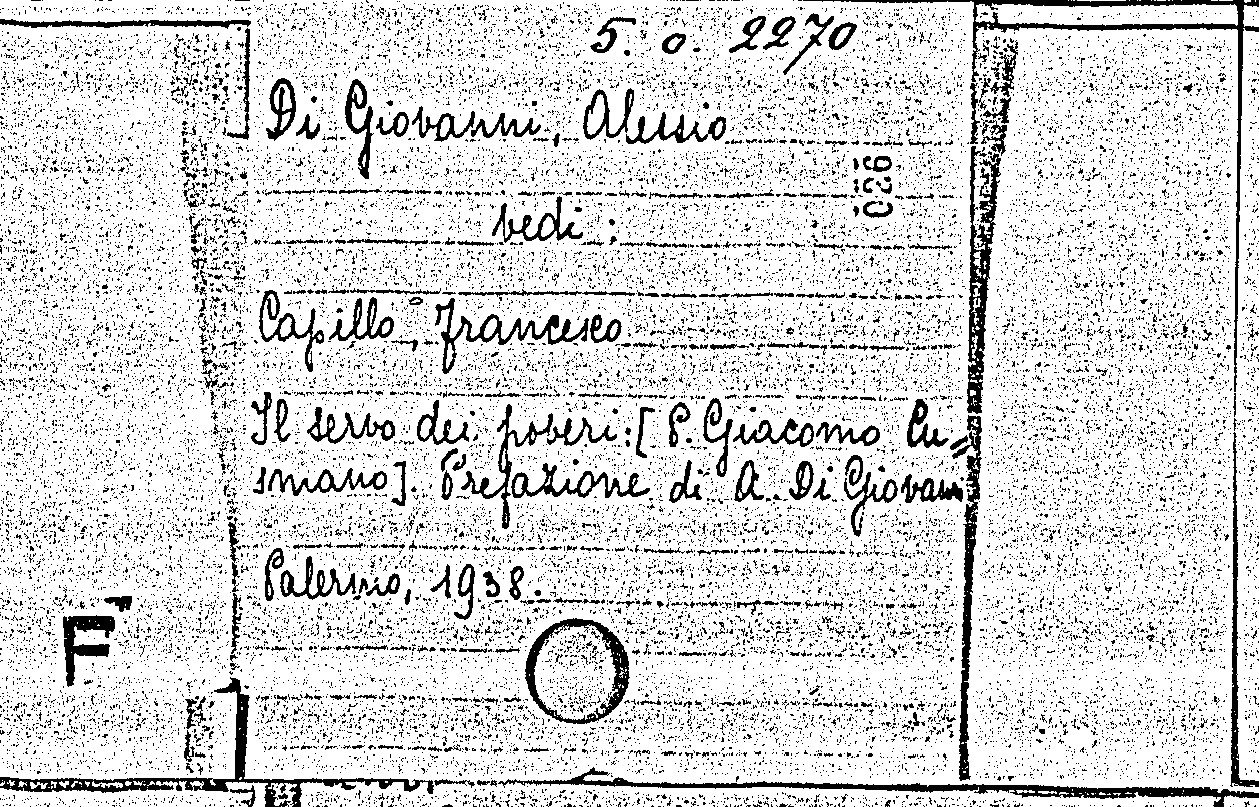 5. o. 2270
Di Giovanni, Alessio
vedi :
Capillo, Francesco
Il servo dei poveri: [P. Giacomo Cu=
smano]. Prefazione di A. Di Giovanni
Palermo, 1938.
F